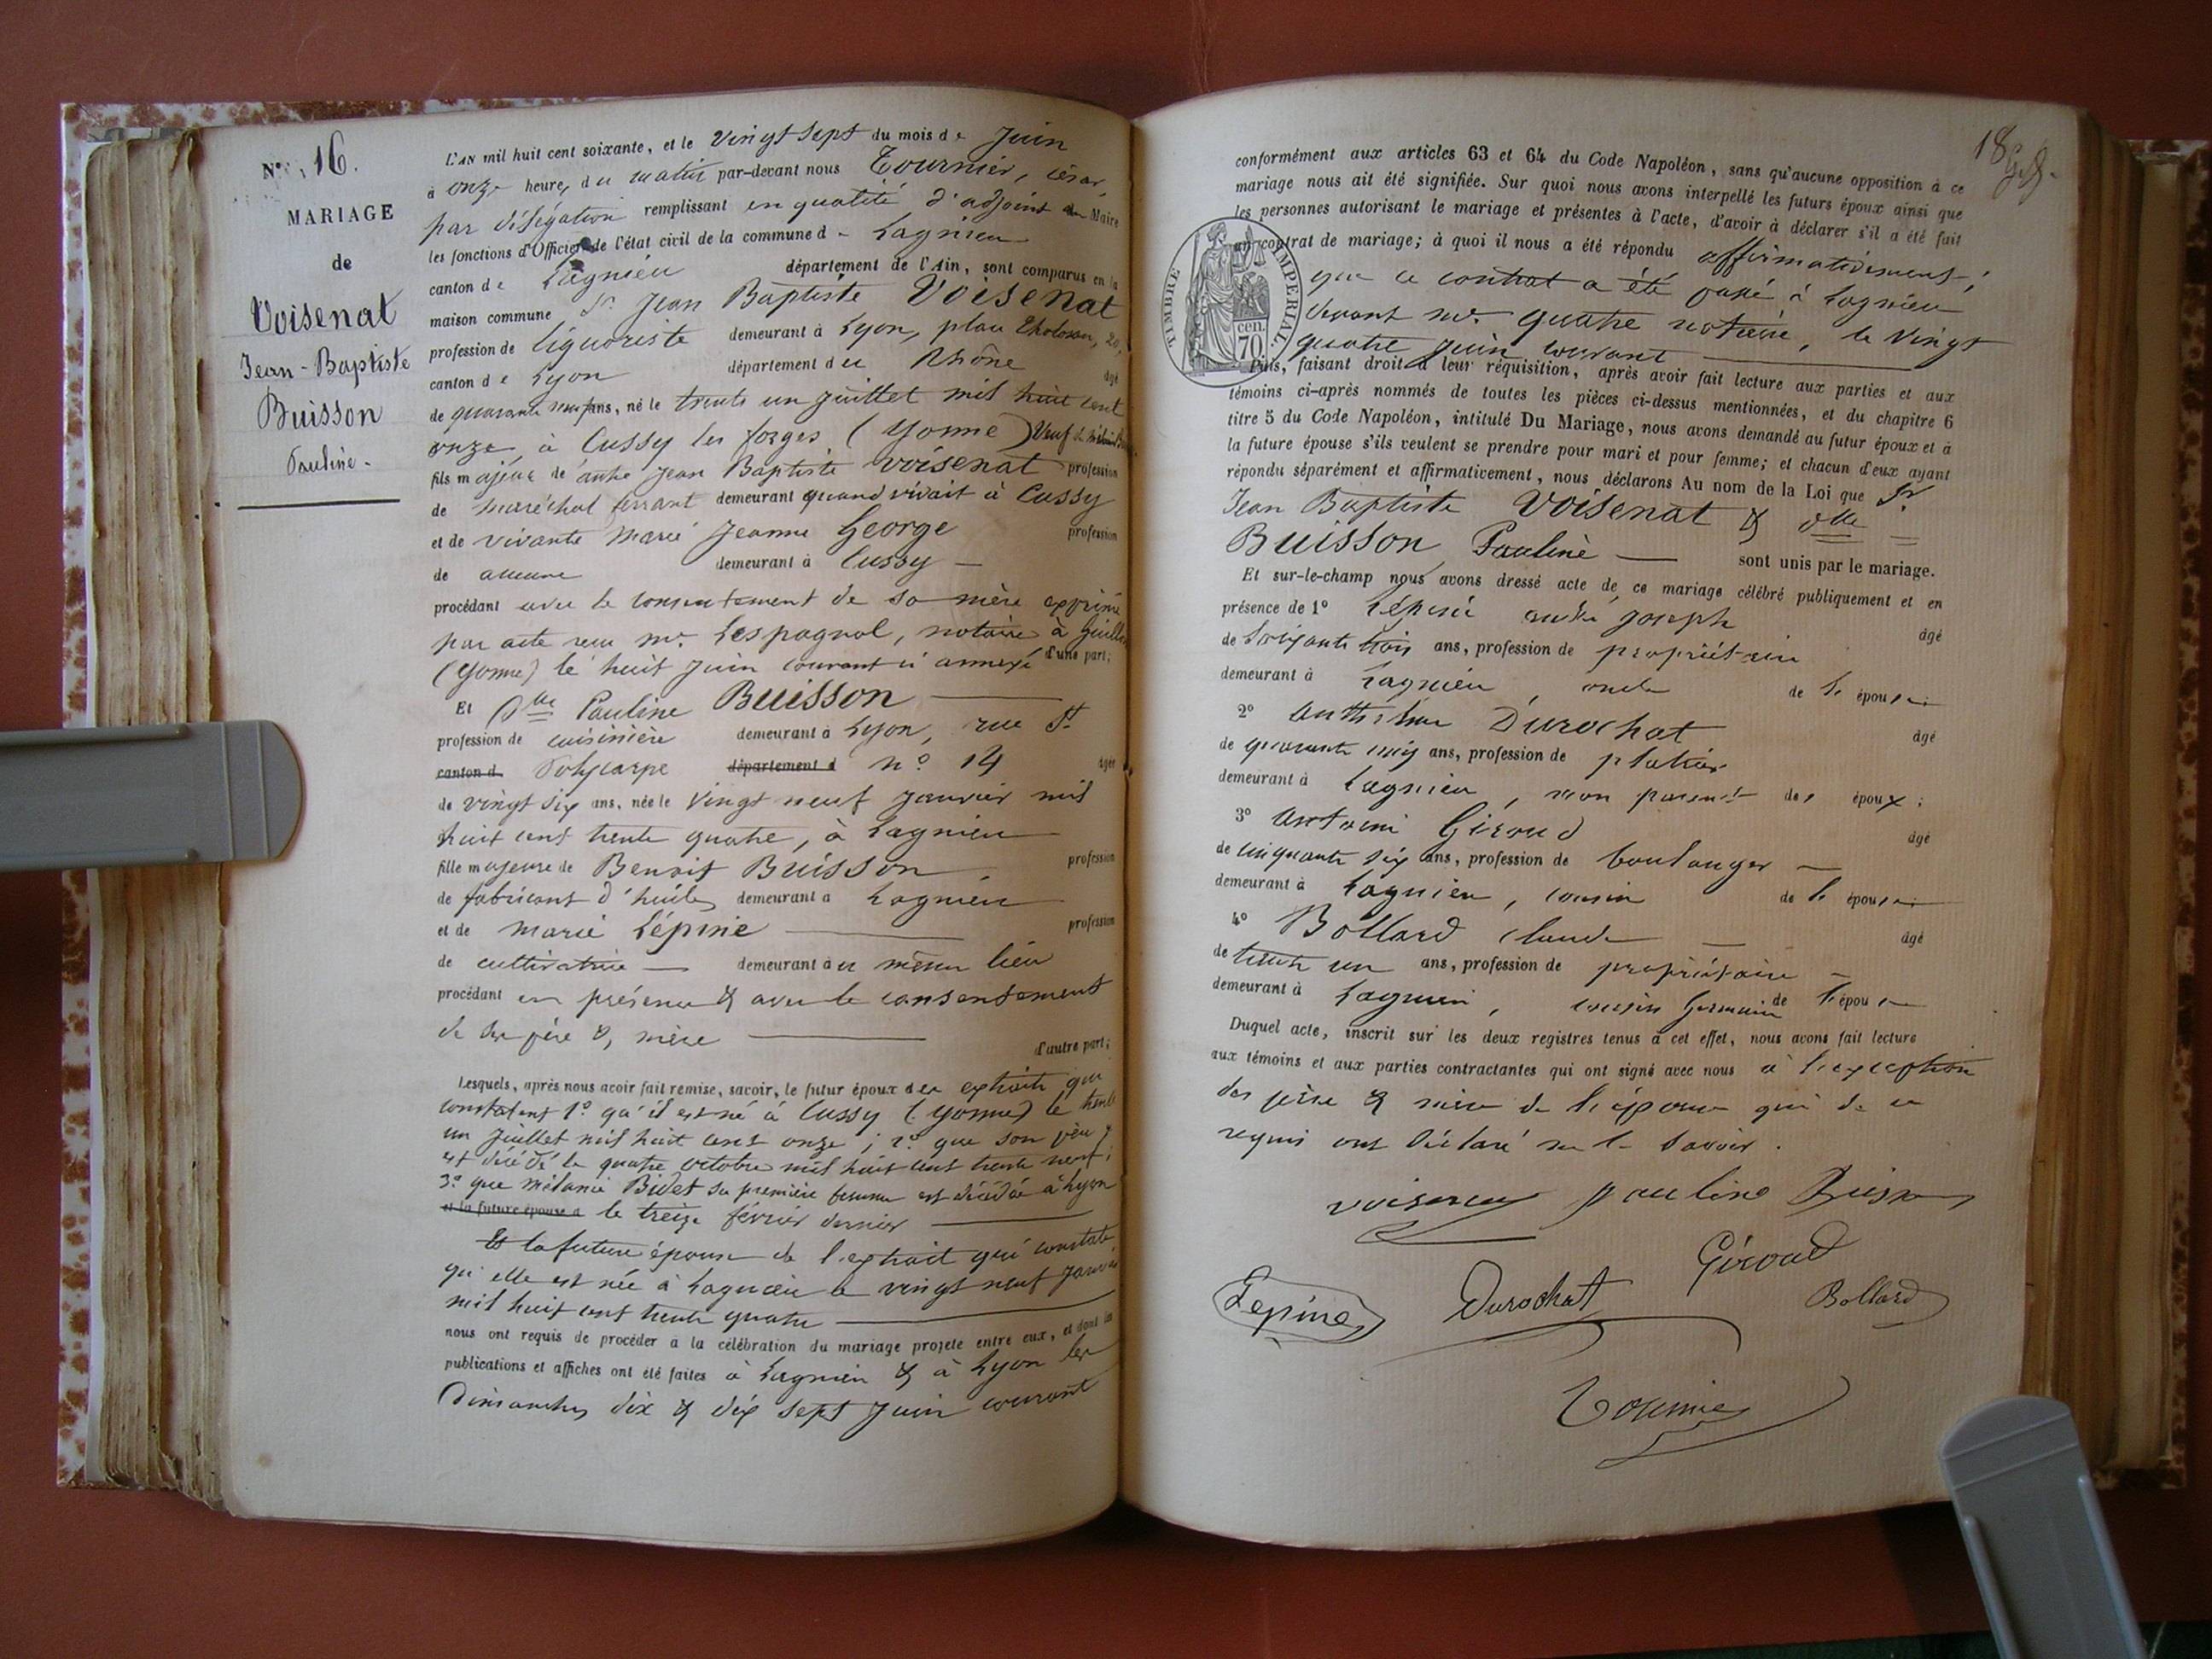 N° 16.
MARIAGE
de
Voisenat
Jean-Baptiste
Buisson
Pauline.
L'AN mil huit cent soixante, et le vingt sept du mois de Juin
à onze heures du matin par-devant nous Tournier, César,
par délégation remplissant en qualité d'adjoint au Maire
les fonctions d'Officier de l'état civil de la commune de Lagnieu
canton de Lagnieu département de l'Ain, sont comparus en la
maison commune Sr Jean Baptiste Voisenat
profession de liquoriste demeurant à Lyon, place Tholosan, 20,
canton de Lyon département du Rhône âgé
de quarante neuf ans, né le trente un juillet mil huit cent
onze, à Cussy les forges (Yonne) Veuf de Mélanie
fils majeur de Jean Baptiste Voisenat profession
de maréchal ferrant demeurant quand vivait à Cussy
et de vivante Marie Jeanne George profession
de aucune demeurant à Cussy
procédant avec le consentement de sa mère exprimé
par acte reçu Me Lespagnol, notaire à Guillon
(Yonne) le huit Juin courant ci annexé d'une part;
Et Dlle Pauline Buisson
profession de cuisinière demeurant à Lyon, rue St
canton d Polycarpe département d n° 14 âgée
de vingt six ans, née le vingt neuf Janvier mil
huit cent trente quatre, à Lagnieu
fille majeure de Benoit Buisson profession
de fabricant d'huiles demeurant à Lagnieu
et de Marie Lépine profession
de cultivatrice demeurant à u même lieu
procédant en présence & avec le consentement
de ses père & mère
d'autre part;
Lesquels, après nous avoir fait remise, savoir, le futur époux des extraits qui
constatent 1° qu'il est né à Cussy (Yonne) le trente
un Juillet mil huit cent onze; 2° que son père y
est décédé le quatre octobre mil huit cent trente neuf;
3° que Mélanie Bidet sa première femme est décédée à Lyon
et la future épouse d le treize février dernier
Et la future épouse de l'extrait qui constate
qu'elle est née à Lagnieu le vingt neuf Janvier
mil huit cent trente quatre
nous ont requis de procéder à la célébration du mariage projeté entre eux, et dont les
publications et affiches ont été faites à Lagnieu & à Lyon les
Dimanches dix & dix sept Juin courant
18
conformément aux articles 63 et 64 du Code Napoléon, sans qu'aucune opposition à ce
mariage nous ait été signifiée. Sur quoi nous avons interpellé les futurs époux ainsi que
les personnes autorisant le mariage et présentes à l'acte, d'avoir à déclarer s'il a été fait
un contrat de mariage; à quoi il nous a été répondu affirmativement;
que ce contrat a été passé à Lagnieu
devant Me Quatre notaire, le vingt
quatre Juin courant
TIMBRE IMPERIAL.
70 cen.
Puis, faisant droit à leur réquisition, après avoir fait lecture aux parties et aux
témoins ci-après nommés de toutes les pièces ci-dessus mentionnées, et du chapitre 6
titre 5 du Code Napoléon, intitulé Du Mariage, nous avons demandé au futur époux et à
la future épouse s'ils veulent se prendre pour mari et pour femme; et chacun d'eux ayant
répondu séparément et affirmativement, nous déclarons Au nom de la Loi que Sr
Jean Baptiste Voisenat & Dlle
Buisson Pauline sont unis par le mariage.
Et sur-le-champ nous avons dressé acte de ce mariage célébré publiquement et en
présence de 1° Lépine André Joseph âgé
de soixante trois ans, profession de propriétaire
demeurant à Lagnieu, oncle de l'épouse;
2° Anthelme Durochat âgé
de quarante ans, profession de plâtrier
demeurant à Lagnieu, non parent des époux;
3° Antoine Giroud âgé
de cinquante six ans, profession de boulanger
demeurant à Lagnieu, cousin de l'épouse;
4° Bollard Claude âgé
de trente un ans, profession de propriétaire
demeurant à Lagnieu, cousin Germain de l'épouse
Duquel acte, inscrit sur les deux registres tenus à cet effet, nous avons fait lecture
aux témoins et aux parties contractantes qui ont signé avec nous à l'exception
des père & mère de l'épouse qui de ce
requis ont déclaré ne le savoir.
Voisenat pauline Buisson
Giroud
Lepine Durochat Bollard
Tournier